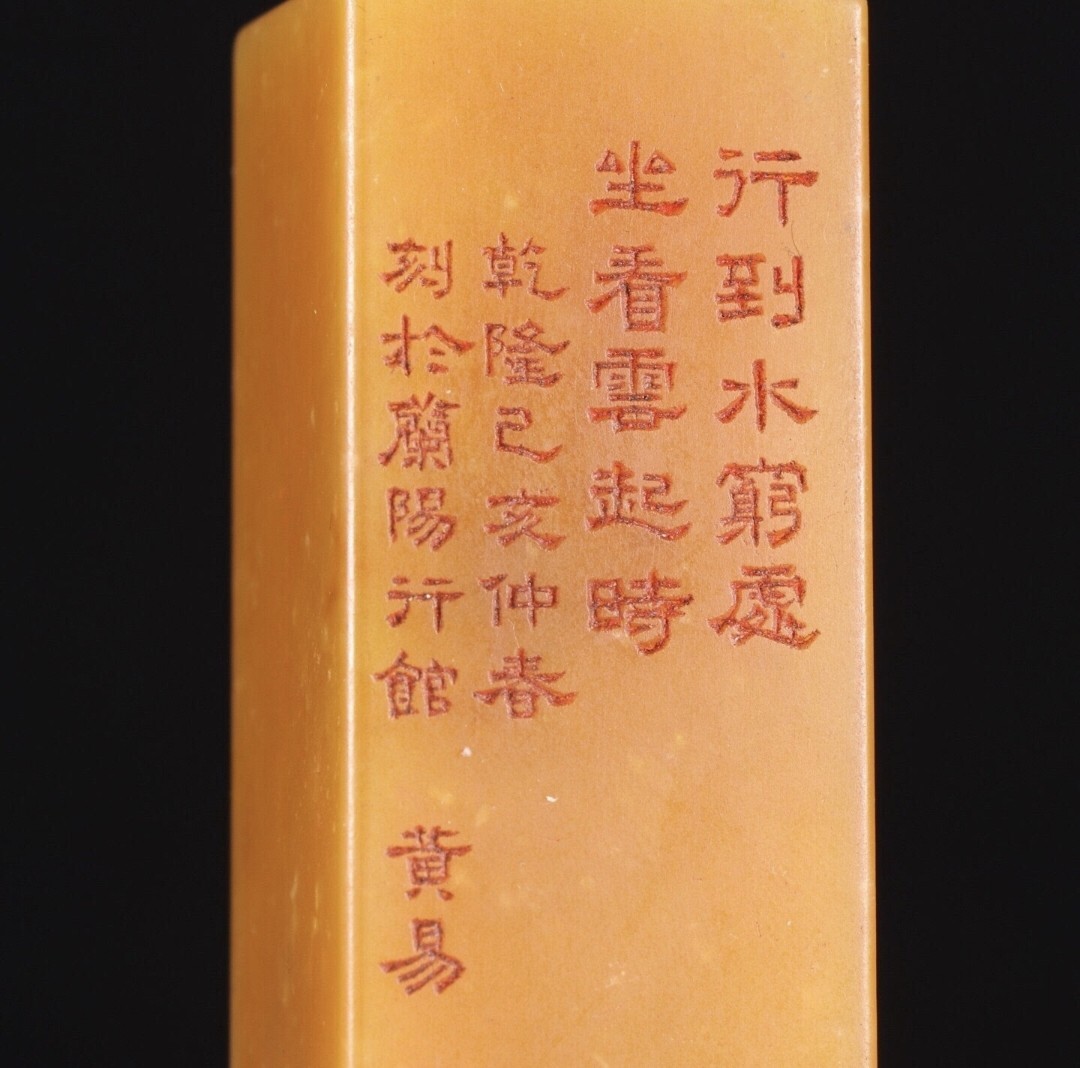 行到水窮處
坐看雲起時
乾隆己亥仲春
刻於蘭陽行館 黄易